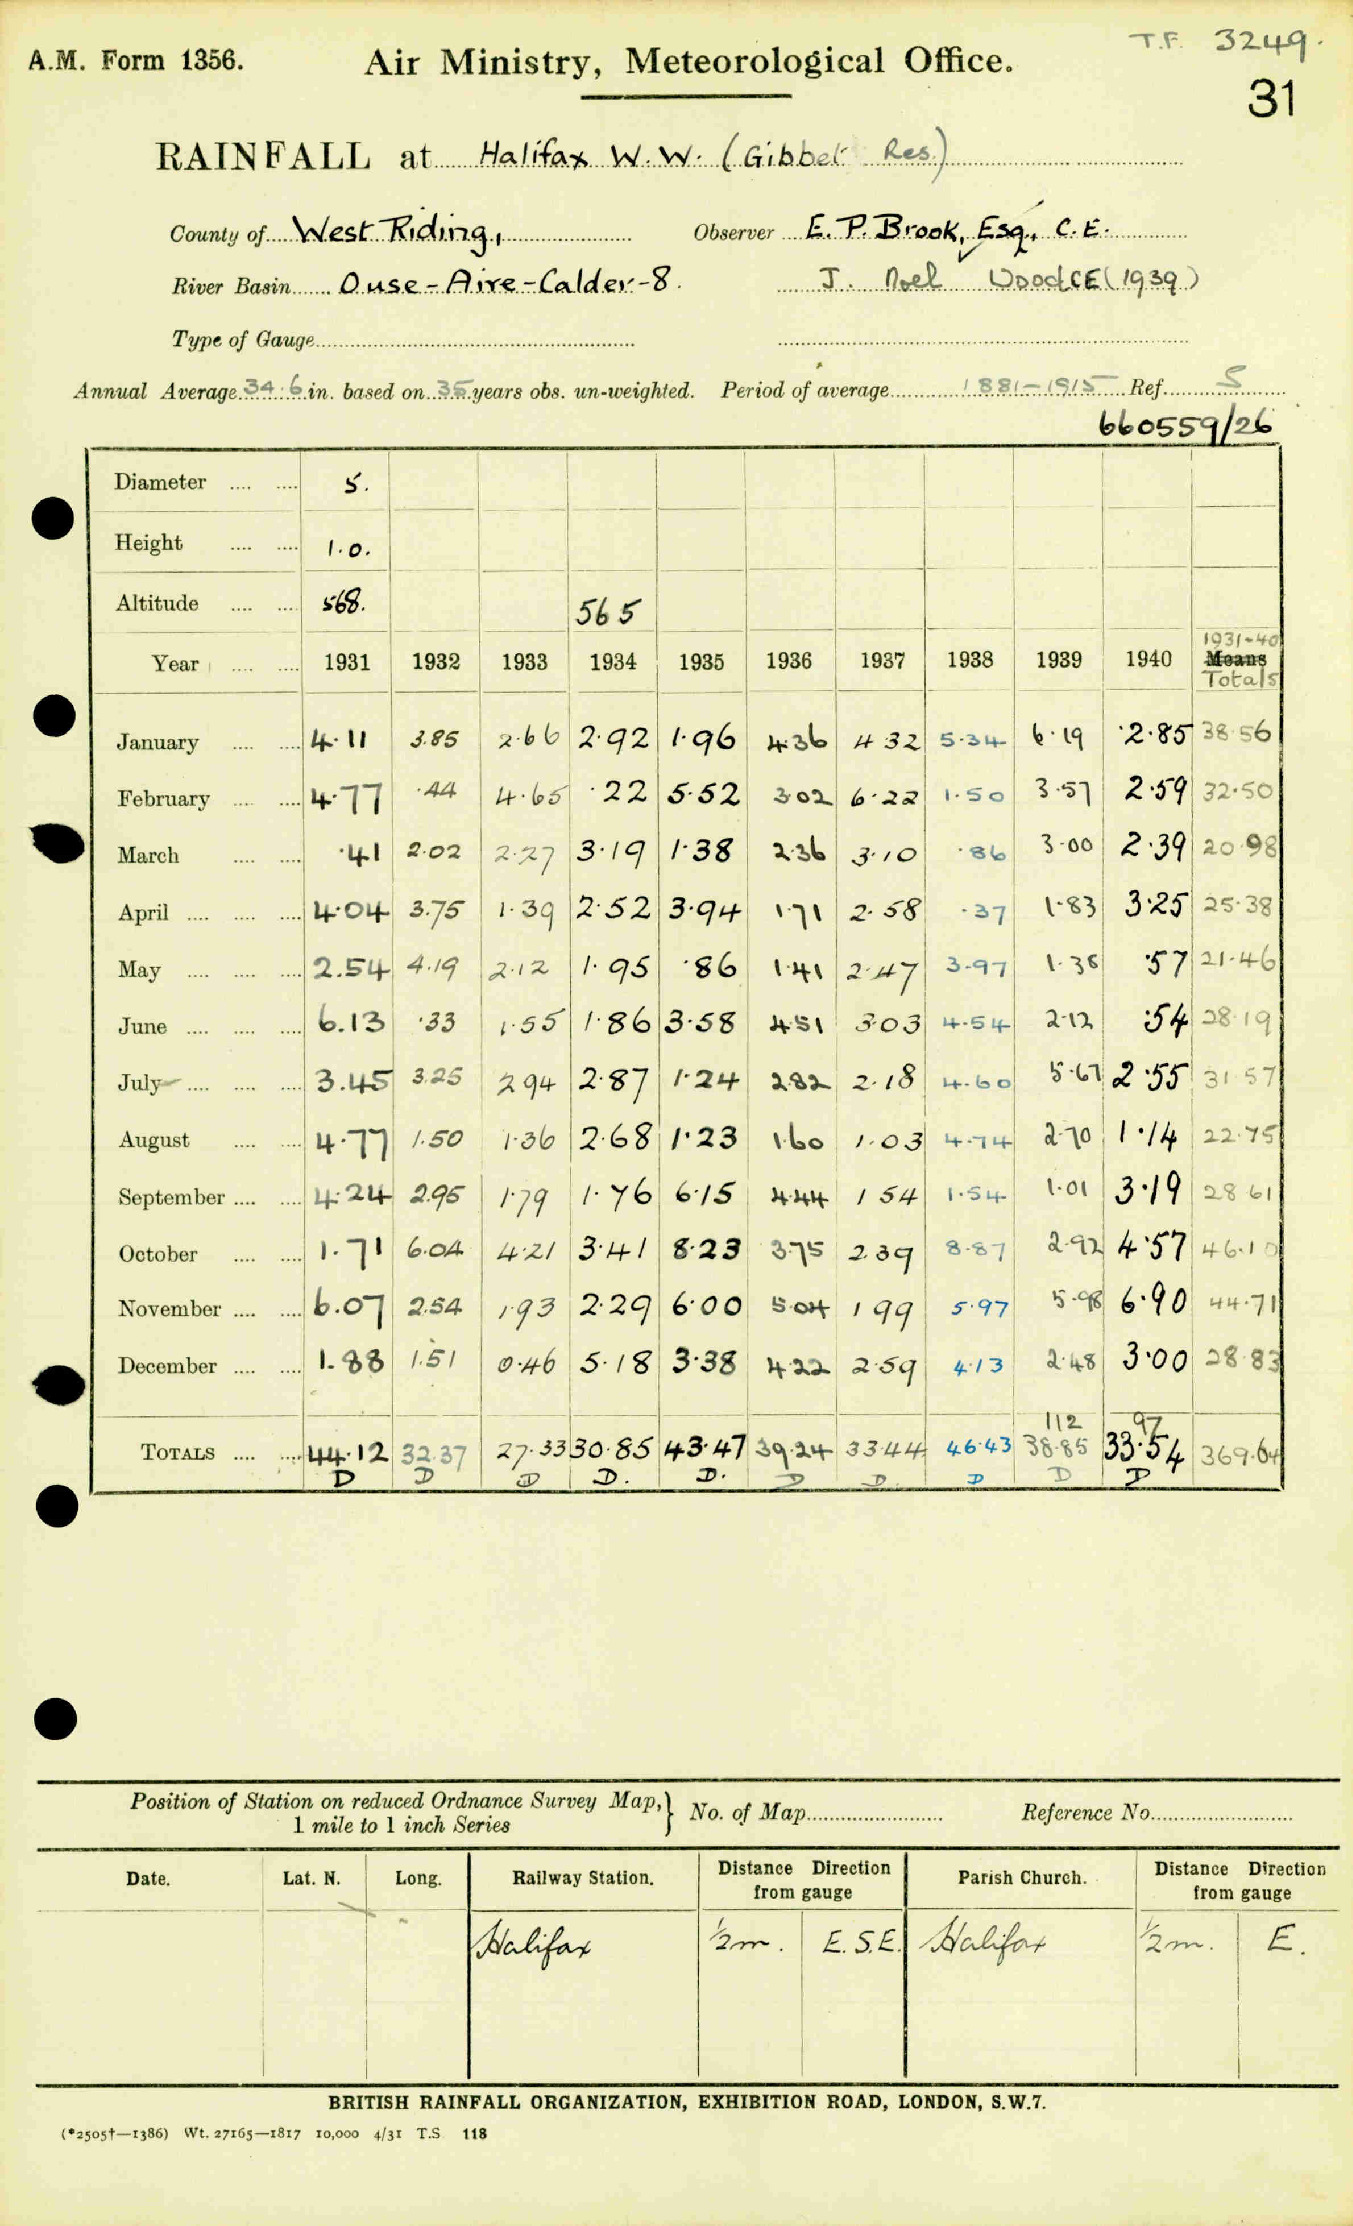 T.F. 3249.
A.M. Form 1356. Air Ministry, Meteorological Office.
31
RAINFALL at Halifax W.W. (Gibbet Res.)
County of West Riding, Observer E. P. Brook, Esq., C.E.
River Basin Ouse-Aire-Calder-8. J. Noel Wood CE (1939)
Type of Gauge
Annual Average 34.6 in. based on 35 years obs. un-weighted. Period of average 1881-1915 Ref. 5
660559/26
Diameter .... .... 5.
Height .... .... 1.0.
Altitude .... .... 568. 565
1931-40
Year .... .... 1931 1932 1933 1934 1935 1936 1937 1938 1939 1940 Means
Totals
January .... .... 4.11 3.85 2.66 2.92 1.96 4.36 4.32 5.34 6.19 2.85 38.56
February .... .... 4.77 .44 4.65 .22 5.52 3.02 6.22 1.50 3.57 2.59 32.50
March .... .... .41 2.02 2.27 3.19 1.38 2.36 3.10 .86 3.00 2.39 20.98
April .... .... .... 4.04 3.75 1.39 2.52 3.94 1.71 2.58 .37 1.83 3.25 25.38
May .... .... .... 2.54 4.19 2.12 1.95 .86 1.41 2.47 3.97 1.38 .57 21.46
June .... .... .... 6.13 .33 1.55 1.86 3.58 4.51 3.03 4.54 2.12 .54 28.19
July .... .... .... 3.45 3.25 2.94 2.87 1.24 2.82 2.18 4.60 5.67 2.55 31.57
August .... .... 4.77 1.50 1.36 2.68 1.23 1.60 1.03 4.74 2.70 1.14 22.75
September .... .... 4.24 2.95 1.79 1.76 6.15 4.44 1.54 1.54 1.01 3.19 28.61
October .... .... 1.71 6.04 4.21 3.41 8.23 3.75 2.39 8.87 2.92 4.57 46.10
November .... .... 6.07 2.54 1.93 2.29 6.00 5.04 1.99 5.97 5.98 6.90 44.71
December .... .... 1.88 1.51 0.46 5.18 3.38 4.22 2.59 4.13 2.48 3.00 28.83
112 97
TOTALS .... .... 44.12 32.37 27.33 30.85 43.47 39.24 33.44 46.43 38.85 33.54 369.64
D D D D. D. D D. D D D
Position of Station on reduced Ordnance Survey Map,} No. of Map Reference No.
1 mile to 1 inch Series
Date. Lat. N. Long. Railway Station. Distance Direction from gauge Parish Church. Distance Direction from gauge
Halifax ½m. E.S.E. Halifax ½m. E.
BRITISH RAINFALL ORGANIZATION, EXHIBITION ROAD, LONDON, S.W.7.
(*2505†—1386) Wt. 27165—1817 10,000 4/31 T.S. 118